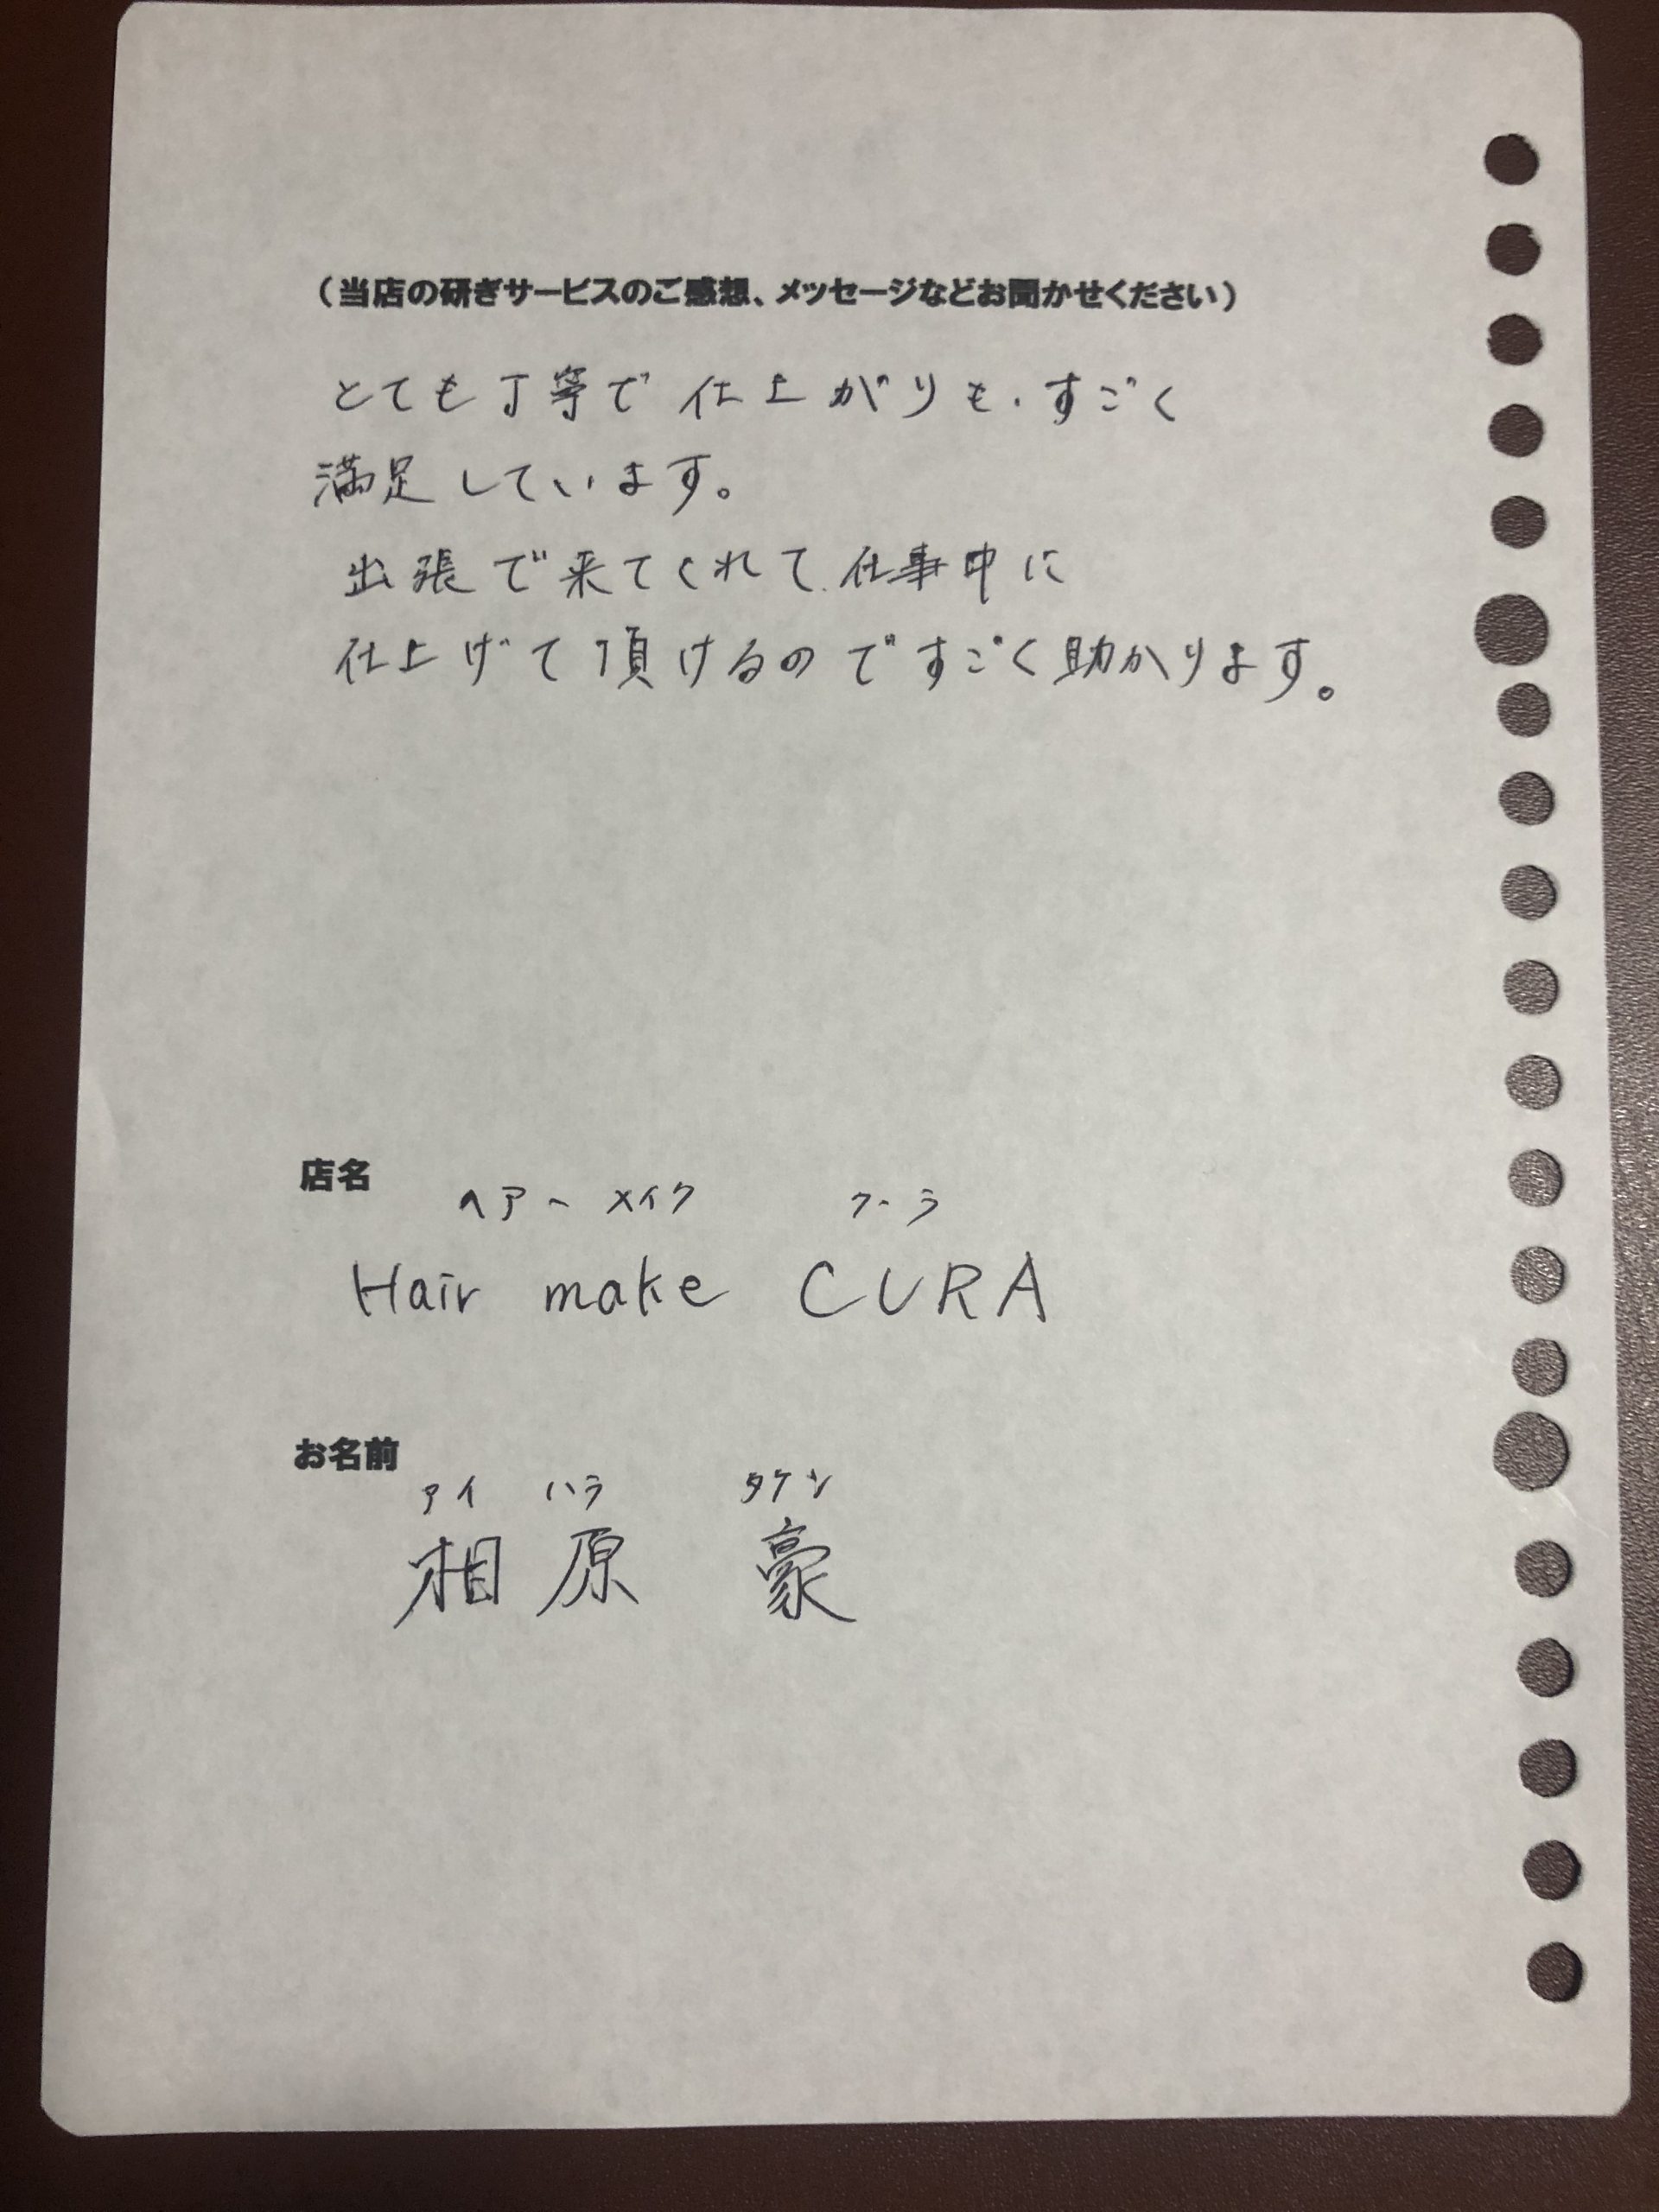 (当店の研ぎサービスのご感想、メッセージなどお聞かせください)
とても丁寧で仕上がりも、すごく
満足しています。
出張で来てくれて、仕事中に
仕上げて頂けるのですごく助かります。
店名
ヘアーメイク クーラ
Hair make CURA
お名前
アイ ハラ タケシ
相原 豪